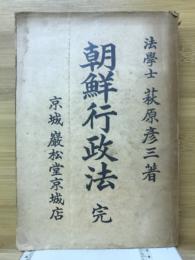 法學士 荻原彦三著
朝鮮行政法 完
京城 巖松堂京城店